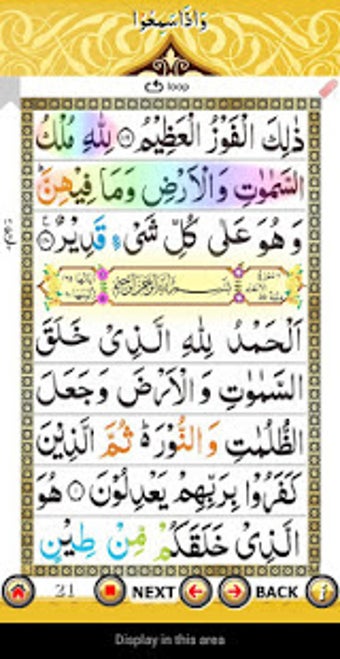 وَاِذَاسَمِعُوا
loop
ذٰلِكَ الْفَوْزُ الْعَظِيْمُ ۝ لِلّٰهِ مُلْكُ
السَّمٰوٰتِ وَالْاَرْضِ وَمَا فِيْهِنَّ
وَهُوَ عَلٰى كُلِّ شَىْءٍ قَدِيْرٌ ۝
بِسْمِ اللّٰهِ الرَّحْمٰنِ الرَّحِيْمِ
اَلْحَمْدُ لِلّٰهِ الَّذِىْ خَلَقَ
السَّمٰوٰتِ وَالْاَرْضَ وَجَعَلَ
الظُّلُمٰتِ وَالنُّوْرَ ؕ ثُمَّ الَّذِيْنَ
كَفَرُوْا بِرَبِّهِمْ يَعْدِلُوْنَ ۝ هُوَ
الَّذِىْ خَلَقَكُمْ مِّنْ طِيْنٍ
21 NEXT BACK i
Display in this area